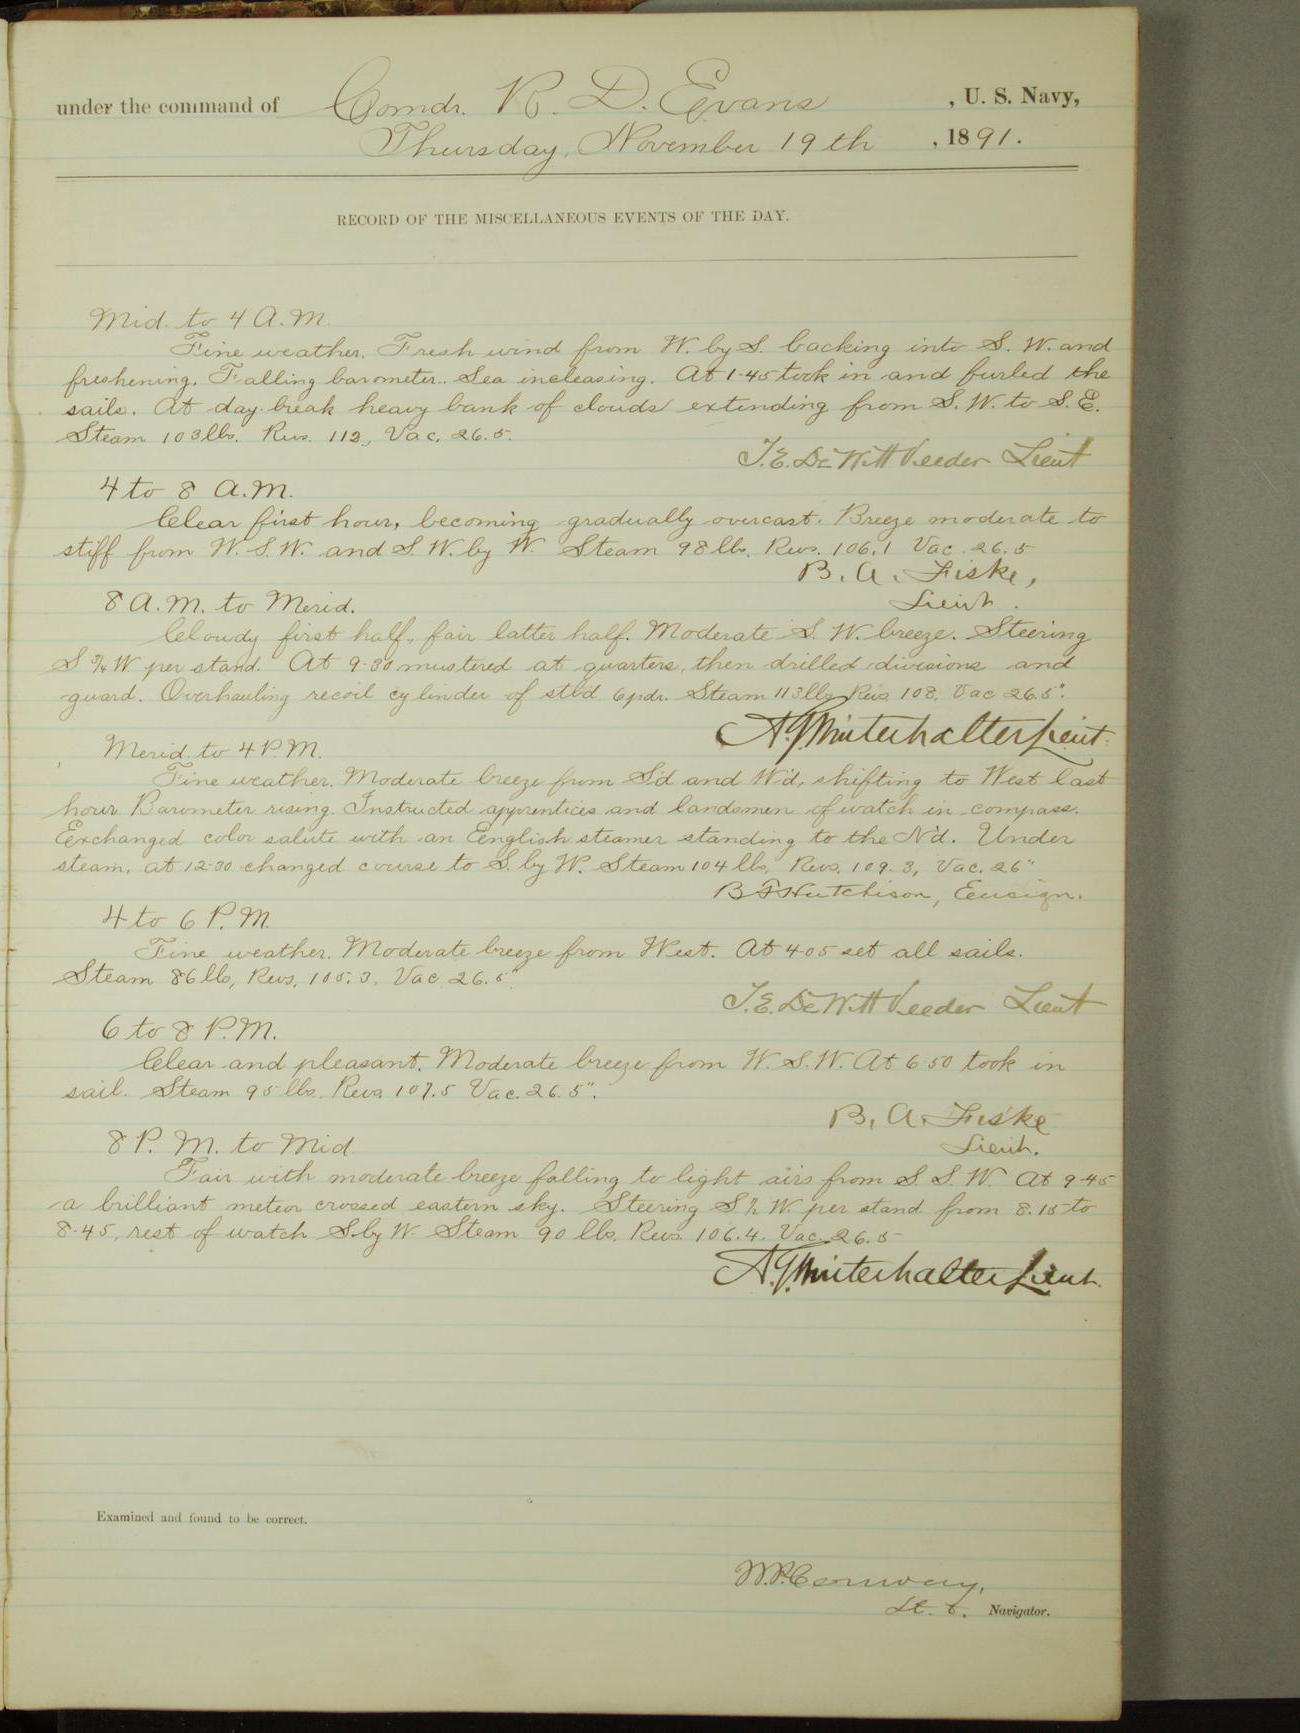 under the command of Comdr. R. D. Evans, U. S. Navy,
Thursday, November 19th, 1891.
RECORD OF THE MISCELLANEOUS EVENTS OF THE DAY.
Mid. to 4 A.M.
Fine weather. Fresh wind from W. by S. backing into S. W. and
freshening. Falling barometer.. Sea increasing. At 1.45 took in and furled the
sails. At day break heavy bank of clouds extending from S. W. to S. E.
Steam 103 lbs. Revs. 112, Vac. 26.5.
T. E. DeWitt Veeder Lieut
4 to 8 A.M.
Clear first hour, becoming gradually overcast. Breeze moderate to
stiff from W. S. W. and S. W. by W. Steam 98 lbs. Revs. 106.1 Vac. 26.5
B. A. Fiske,
Lieut.
8 A.M. to Merid.
Cloudy first half, fair latter half. Moderate S. W. breeze. Steering
S 3/4 W per stand. At 9.30 mustered at quarters, then drilled divisions and
guard. Overhauling recoil cylinder of stb'd 6 pdr. Steam 113 lbs Revs 108. Vac 26.5".
A. G. Winterhalter Lieut.
Merid. to 4 P.M.
Fine weather. Moderate breeze from S'd and W'd, shifting to West last
hour Barometer rising. Instructed apprentices and landsmen of watch in compass.
Exchanged color salute with an English steamer standing to the N'd. Under
steam, at 12.30 changed course to S. by W. Steam 104 lbs, Revs. 109.3, Vac. 26"
B F Hutchison, Ensign.
4 to 6 P.M.
Fine weather. Moderate breeze from West. At 4.05 set all sails.
Steam 86 lb, Revs. 105.3, Vac. 26.5"
T. E. DeWitt Veeder Lieut
6 to 8 P.M.
Clear and pleasant. Moderate breeze from W. S. W. At 6 50 took in
sail. Steam 95 lbs. Revs. 107.5 Vac. 26.5".
B. A. Fiske
Lieut.
8 P. M. to Mid
Fair with moderate breeze falling to light airs from S. S. W. At 9.45
a brilliant meteor crossed eastern sky. Steering S 1/2 W. per stand from 8.15 to
8.45, rest of watch S. by W. Steam 90 lbs. Revs. 106.4. Vac. 26.5
A. G. Winterhalter Lieut.
Examined and found to be correct.
W. P. Conway,
Navigator.